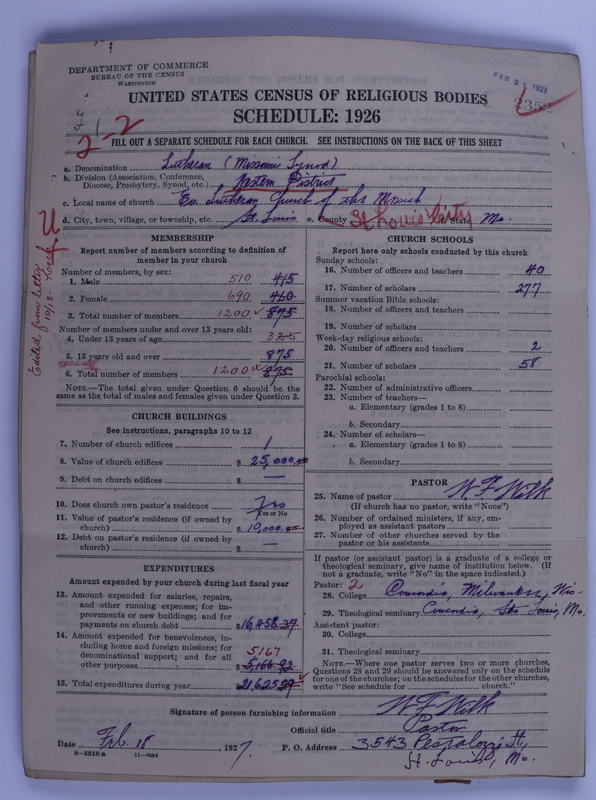 DEPARTMENT OF COMMERCE
BUREAU OF THE CENSUS
WASHINGTON
FEB 21 1927
3352
UNITED STATES CENSUS OF RELIGIOUS BODIES
SCHEDULE: 1926
2-2
FILL OUT A SEPARATE SCHEDULE FOR EACH CHURCH. SEE INSTRUCTIONS ON THE BACK OF THIS SHEET
a. Denomination Lutheran (Missouri Synod)
b. Division (Association, Conference, Diocese, Presbytery, Synod, etc.) Western District
c. Local name of church Ev. Lutheran Church of the Messiah
d. City, town, village, or township, etc. St. Louis e. County St Louis City f. State Mo.
U
Edited from letter 10/18-
MEMBERSHIP
Report number of members according to definition of
member in your church
Number of members, by sex:
1. Male 510 415
2. Female 690 460
3. Total number of members 1200 875
Number of members under and over 13 years old:
4. Under 13 years of age 325
5. 13 years old and over 875
6. Total number of members 1200 875
NOTE.—The total given under Question 6 should be the
same as the total of males and females given under Question 3.
CHURCH BUILDINGS
See instructions, paragraphs 10 to 12
7. Number of church edifices 1
8. Value of church edifices $ 25,000.00
9. Debt on church edifices $ —
10. Does church own pastor's residence? Yes
Yes or No
11. Value of pastor's residence (if owned by
church) $ 10,000.00
12. Debt on pastor's residence (if owned by
church) $ —
EXPENDITURES
Amount expended by your church during last fiscal year
13. Amount expended for salaries, repairs,
and other running expenses; for im-
provements or new buildings; and for
payments on church debt $ 16,458.37
14. Amount expended for benevolences, in-
cluding home and foreign missions; for
denominational support; and for all
other purposes 5167 $ 5,166.92
15. Total expenditures during year $ 21,625.29
CHURCH SCHOOLS
Report here only schools conducted by this church
Sunday schools:
16. Number of officers and teachers 40
17. Number of scholars 277
Summer vacation Bible schools:
18. Number of officers and teachers
19. Number of scholars
Week-day religious schools:
20. Number of officers and teachers 2
21. Number of scholars 58
Parochial schools:
22. Number of administrative officers
23. Number of teachers—
a. Elementary (grades 1 to 8)
b. Secondary
24. Number of scholars—
a. Elementary (grades 1 to 8)
b. Secondary
PASTOR
25. Name of pastor W F Wilk
(If church has no pastor, write "None")
26. Number of ordained ministers, if any, em-
ployed as assistant pastors
27. Number of other churches served by the
pastor or his assistants
If pastor (or assistant pastor) is a graduate of a college or
theological seminary, give name of institution below. (If
not a graduate, write "No" in the space indicated.)
Pastor: 2
28. College Concordia, Milwaukee, Wis.
29. Theological seminary Concordia, St. Louis, Mo.
Assistant pastor:
30. College
31. Theological seminary
NOTE.—Where one pastor serves two or more churches,
Questions 28 and 29 should be answered only on the schedule
for one of the churches; on the schedules for the other churches,
write "See schedule for church."
Signature of person furnishing information W. F. Wilk
Official title Pastor
Date Feb. 18 1927. P. O. Address 3543 Pestalozzi St,
8—5518a 11—9034
St. Louis, Mo.